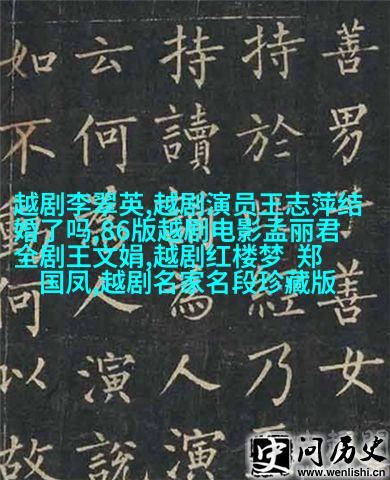 善男善女
持於乃
持讀誦為人演
云何為人演說
如不動何以故
越剧李翠英,越剧演员王志萍结
婚了吗,86版越剧电影孟丽君
全剧王文娟,越剧红楼梦 郑
国凤,越剧名家名段珍藏版
史问历史
www.wenlishi.cn